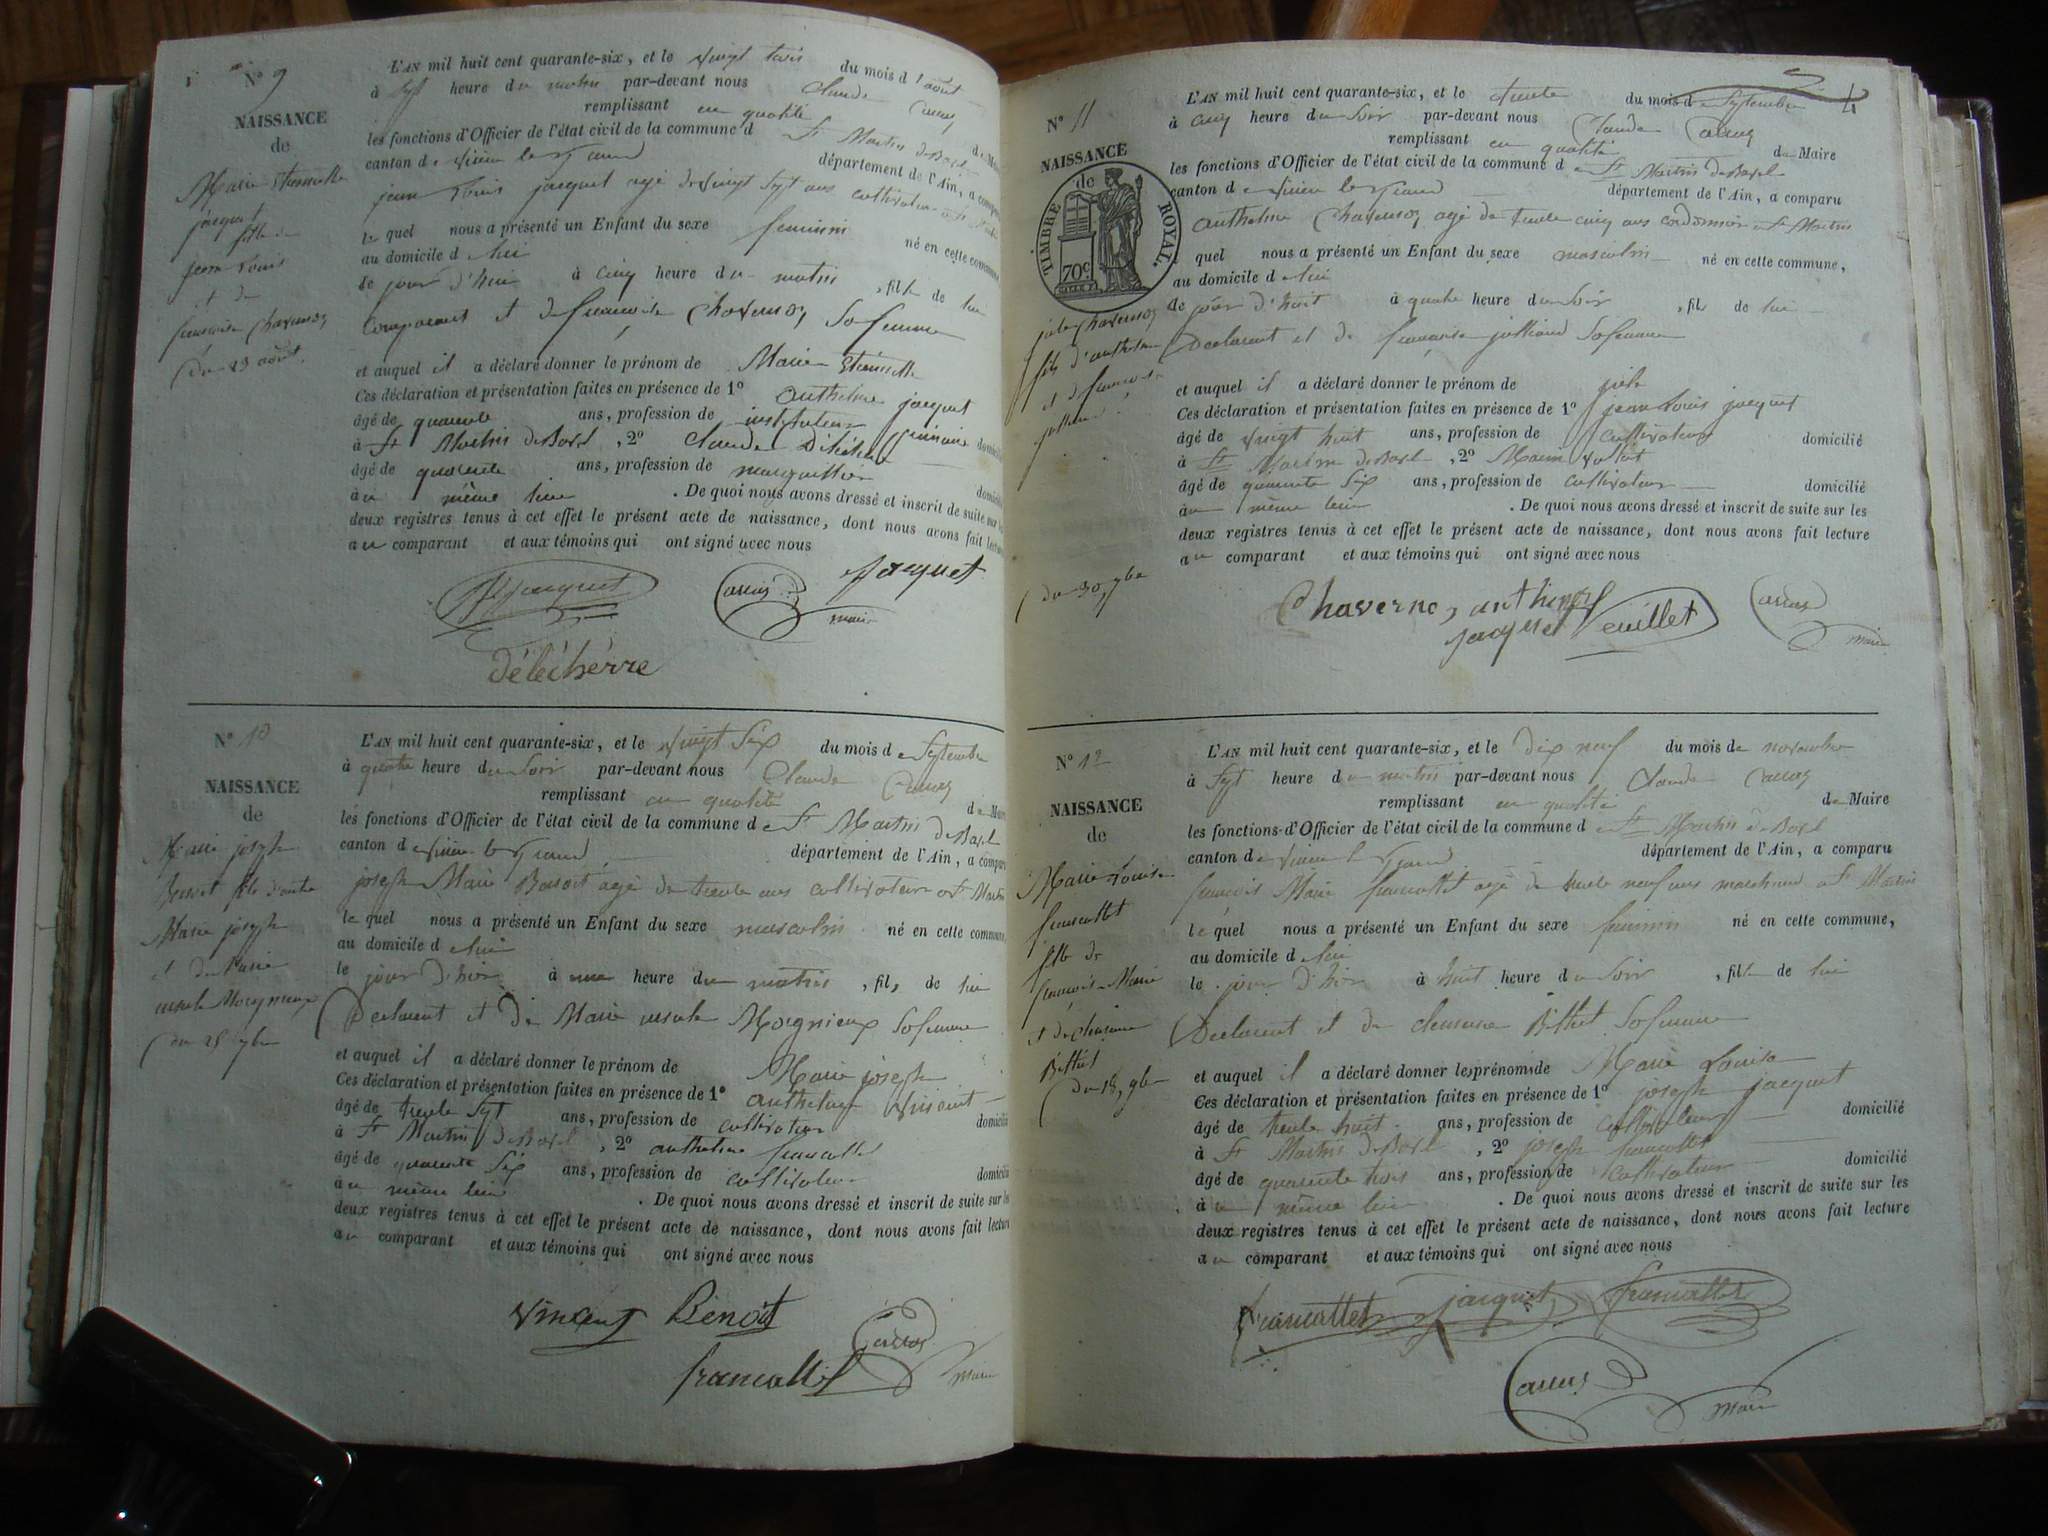 N° 9
NAISSANCE
de
Marie Etiennette
jacquet
fille de
jean Louis
et de
françoise Chavernoz
du 23 août.
L'AN mil huit cent quarante-six, et le vingt trois du mois d'août
à sept heure du matin par-devant nous Claude
remplissant en qualité de Maire
les fonctions d'Officier de l'état civil de la commune de St Martin de Bavel
canton de Virieu le Grand département de l'Ain, a comparu
jean Louis jacquet agé de vingt sept ans cultivateur a St Martin
le quel nous a présenté un Enfant du sexe feminin né en cette commune
au domicile de lui
le jour d'hui à cinq heure du matin, fille de lui
Comparant et de françoise Chavernoz Sa femme
et auquel il a déclaré donner le prénom de Marie Etiennette
Ces déclaration et présentation faites en présence de 1° anthelme jacquet
âgé de quarante ans, profession de instituteur primaire domicilié
à St Martin de Bavel, 2° Claude
âgé de quarante ans, profession de domicilié
au même lieu. De quoi nous avons dressé et inscrit de suite sur les
deux registres tenus à cet effet le présent acte de naissance, dont nous avons fait lecture
au comparant et aux témoins qui ont signé avec nous
jacquet
Jacquet
maire
délécherre
N° 10
NAISSANCE
de
Marie joseph
Benoit fils d'autre
Marie joseph
et de Marie
ursule Moignieux
du 25 7bre
L'AN mil huit cent quarante-six, et le vingt six du mois de Septembre
à quatre heure du Soir par-devant nous Claude
remplissant en qualité de Maire
les fonctions d'Officier de l'état civil de la commune de St Martin de Bavel
canton de Virieu le Grand département de l'Ain, a comparu
joseph Marie Benoit agé de trente ans cultivateur a St Martin
le quel nous a présenté un Enfant du sexe masculin né en cette commune,
au domicile de lui
le jour d'hier à une heure du matin, fils de lui
Declarant et de Marie ursule Moignieux Sa femme
et auquel il a déclaré donner le prénom de Marie joseph
Ces déclaration et présentation faites en présence de 1° anthelme Vincent
âgé de trente sept ans, profession de cultivateur domicilié
à St Martin de Bavel, 2° anthelme francallet
âgé de quarante six ans, profession de cultivateur domicilié
au même lieu. De quoi nous avons dressé et inscrit de suite sur les
deux registres tenus à cet effet le présent acte de naissance, dont nous avons fait lecture
au comparant et aux témoins qui ont signé avec nous
Vincent Benoît
francallet
maire
4
N° 11
NAISSANCE
de
TIMBRE ROYAL.
70c
jule Chavernoz
fils d'anthelme
et de françoise
julliand
du 30, 7bre
L'AN mil huit cent quarante-six, et le trente du mois de Septembre
à cinq heure du Soir par-devant nous Claude
remplissant en qualité de Maire
les fonctions d'Officier de l'état civil de la commune de St Martin de Bavel
canton de Virieu le Grand département de l'Ain, a comparu
anthelme Chavernoz agé de trente cinq ans cordonnier a St Martin
quel nous a présenté un Enfant du sexe masculin né en cette commune,
au domicile de lui
le jour d'huit à quatre heure du Soir, fils de lui
Declarant et de françoise julliand Sa femme
et auquel il a déclaré donner le prénom de jule
Ces déclaration et présentation faites en présence de 1° jean Louis jacquet
âgé de vingt huit ans, profession de cultivateur domicilié
à St Martin de Bavel, 2° Marin
âgé de quarante six ans, profession de cultivateur domicilié
au même lieu. De quoi nous avons dressé et inscrit de suite sur les
deux registres tenus à cet effet le présent acte de naissance, dont nous avons fait lecture
au comparant et aux témoins qui ont signé avec nous
Chavernoz
jacquet
maire
N° 12
NAISSANCE
de
Marie Louise
francallet
fille de
françois Marie
et de
Bithet
du 18, 9bre
L'AN mil huit cent quarante-six, et le dix neuf du mois de novembre
à sept heure du matin par-devant nous Claude
remplissant en qualité de Maire
les fonctions d'Officier de l'état civil de la commune de St Martin de Bavel
canton de Virieu le Grand département de l'Ain, a comparu
françois Marie francallet agé de trente neuf ans marchand a St Martin
le quel nous a présenté un Enfant du sexe feminin né en cette commune,
au domicile de lui
le jour d'hier à huit heure du Soir, fille de lui
Declarant et de Bithet Sa femme
et auquel il a déclaré donner les prénoms de Marie Louise
Ces déclaration et présentation faites en présence de 1° joseph jacquet
âgé de trente huit ans, profession de cultivateur domicilié
à St Martin de Bavel, 2° joseph francallet
âgé de quarante trois ans, profession de cultivateur domicilié
au même lieu. De quoi nous avons dressé et inscrit de suite sur les
deux registres tenus à cet effet le présent acte de naissance, dont nous avons fait lecture
au comparant et aux témoins qui ont signé avec nous
francallet jacquet francallet
maire